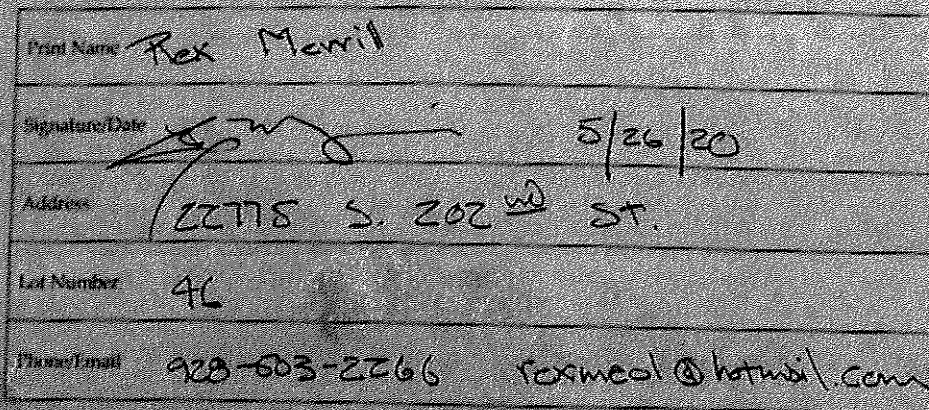 Print Name Rex Merril
Signature/Date 5/26/20
Address 22775 S. 202nd St.
Lot Number 46
Phone/Email 928-603-2266 rexmeol@hotmail.com